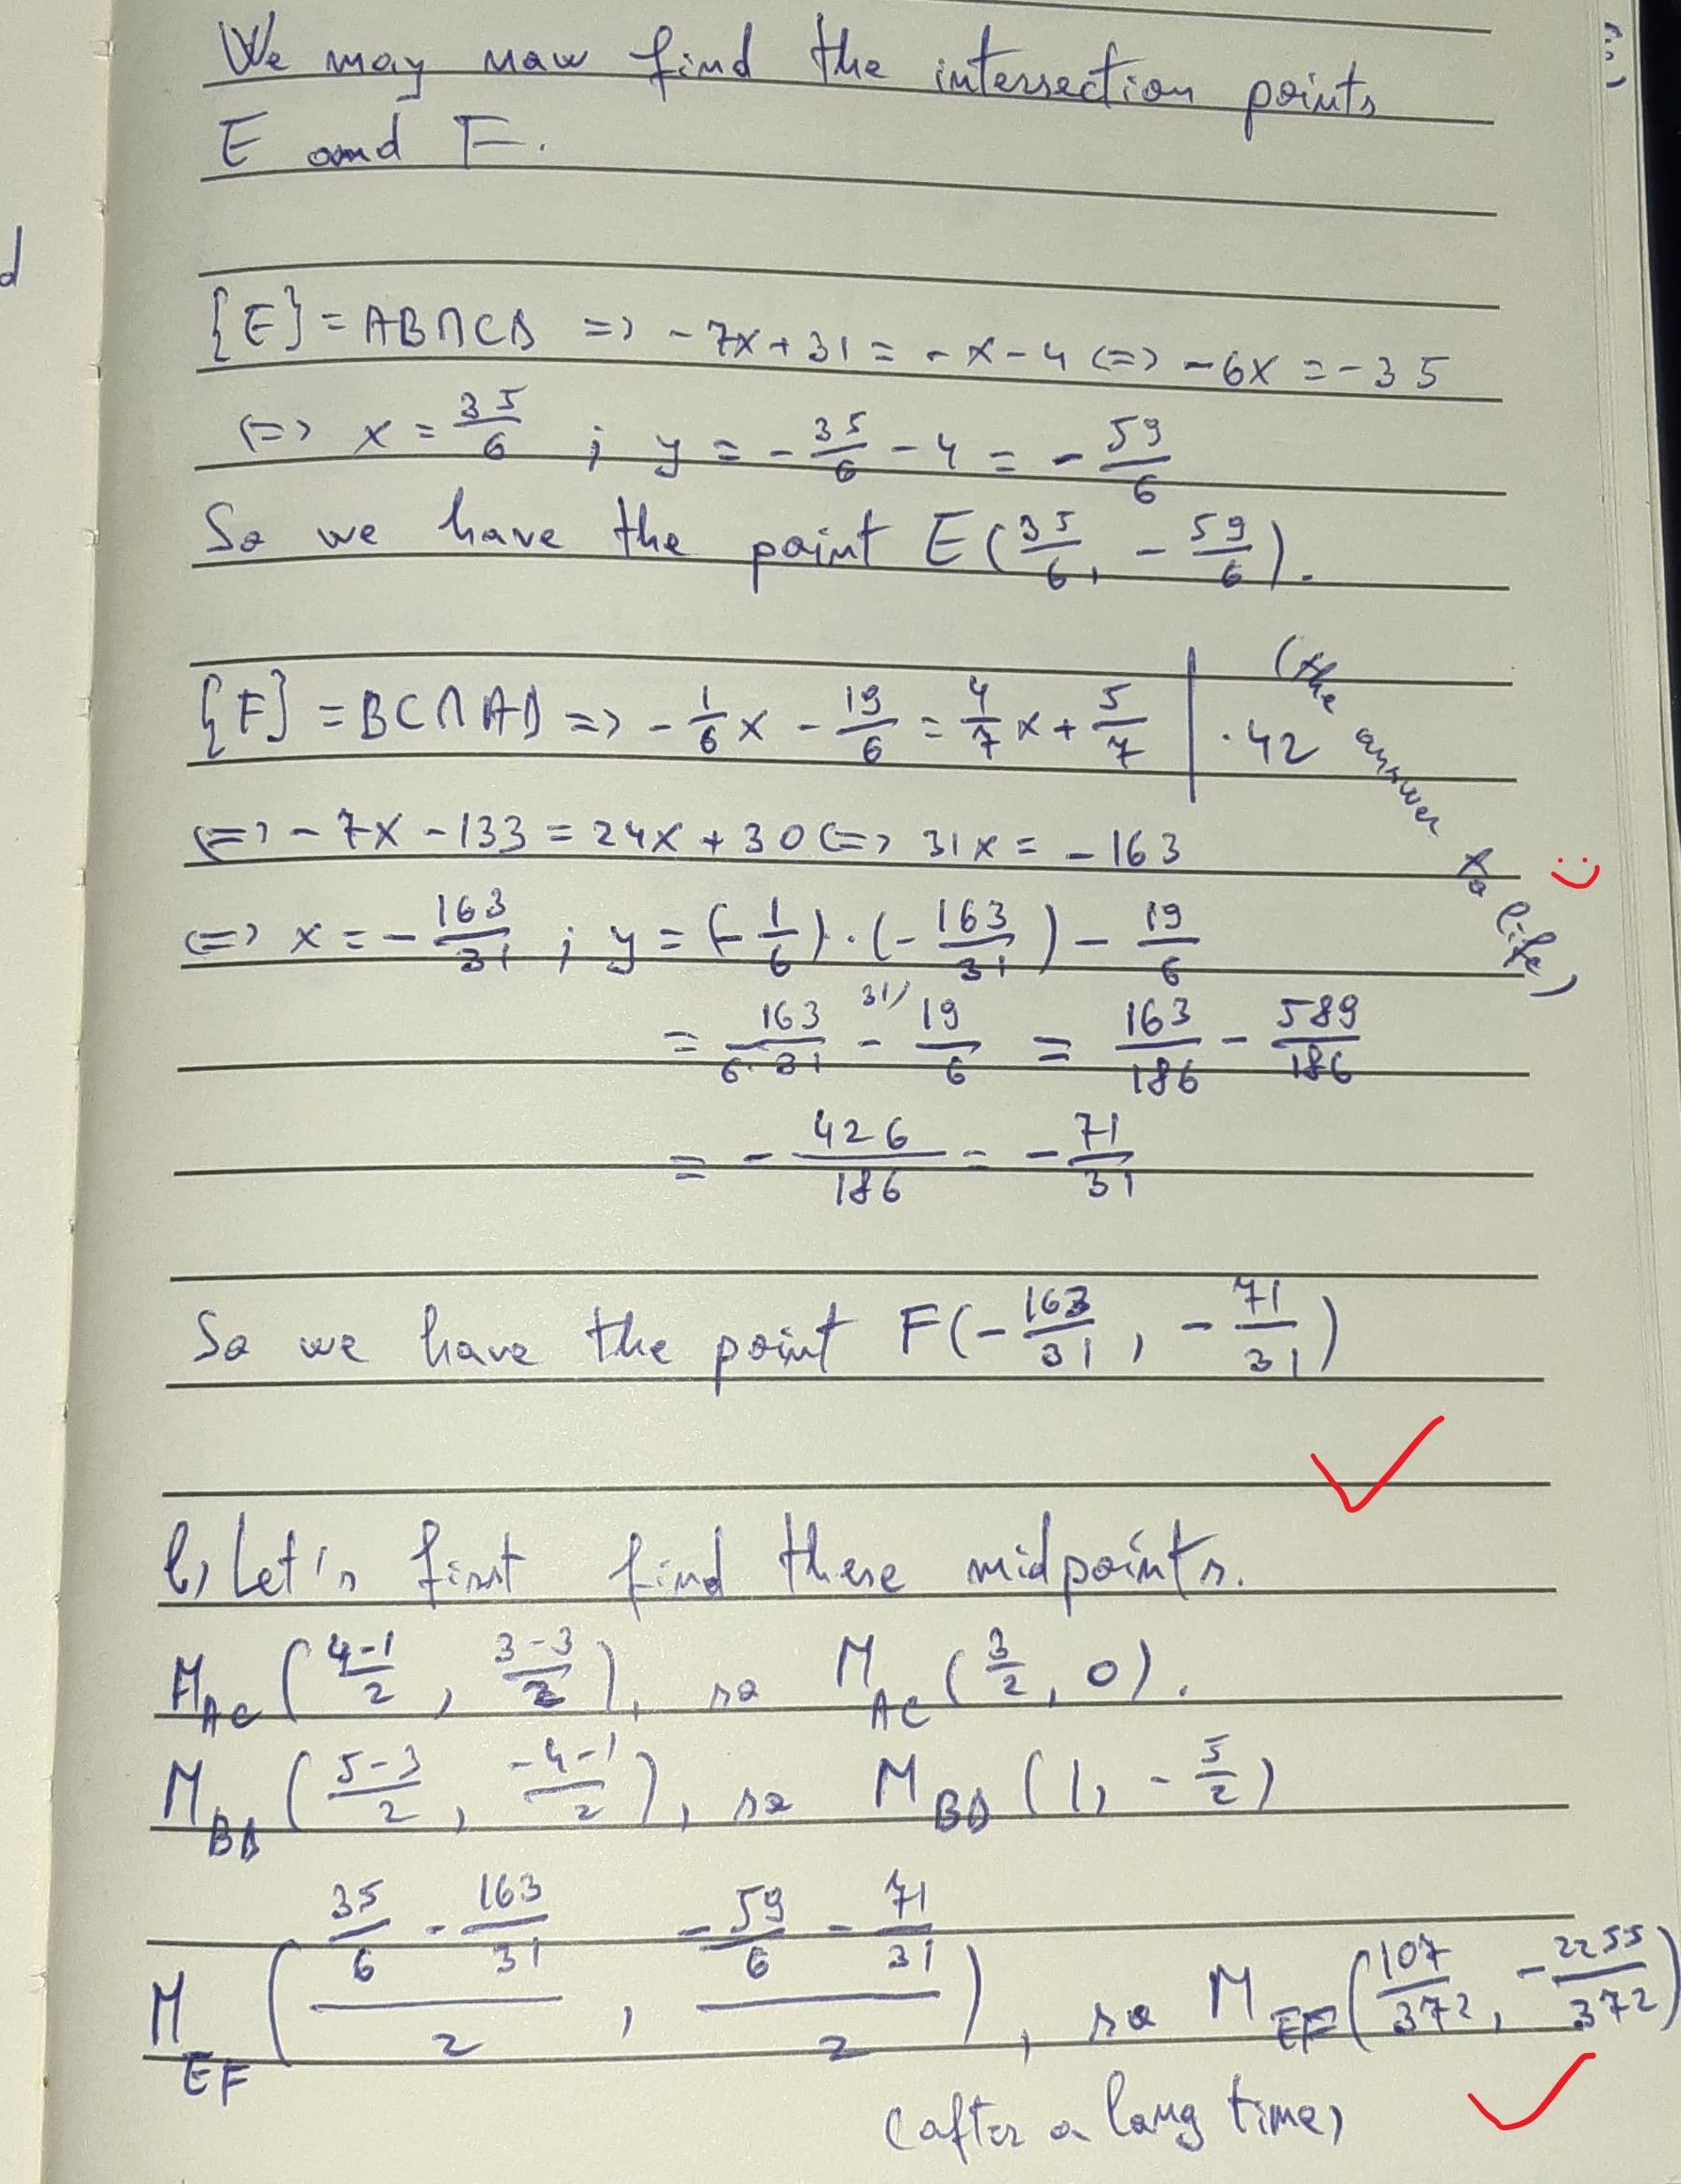 We may now find the intersection points
E and F.
{E} = AB∩CD => -7x+31 = -x-4 <=> -6x = -35
<=> x = 35/6 ; y = -35/6 - 4 = -59/6
So we have the point E(35/6, -59/6).
{F} = BC∩AD => -1/6 x - 19/6 = 4/7 x + 5/7 | ·42 (the answer to life)
<=> -7x - 133 = 24x + 30 <=> 31x = -163
<=> x = -163/31 ; y = (-1/6)·(-163/31) - 19/6
= 163/(6·31) - 31/ 19/6 = 163/186 - 589/186
= -426/186 = -71/31
So we have the point F(-163/31, -71/31)
b) Let's first find these midpoints.
M_AC ((4-1)/2, (3-3)/2), so M_AC (3/2, 0).
M_BD ((5-3)/2, (-4-1)/2), so M_BD (1, -5/2)
M_EF ((35/6 - 163/31)/2, (-59/6 - 71/31)/2), so M_EF (107/372, -2255/372)
(after a long time)